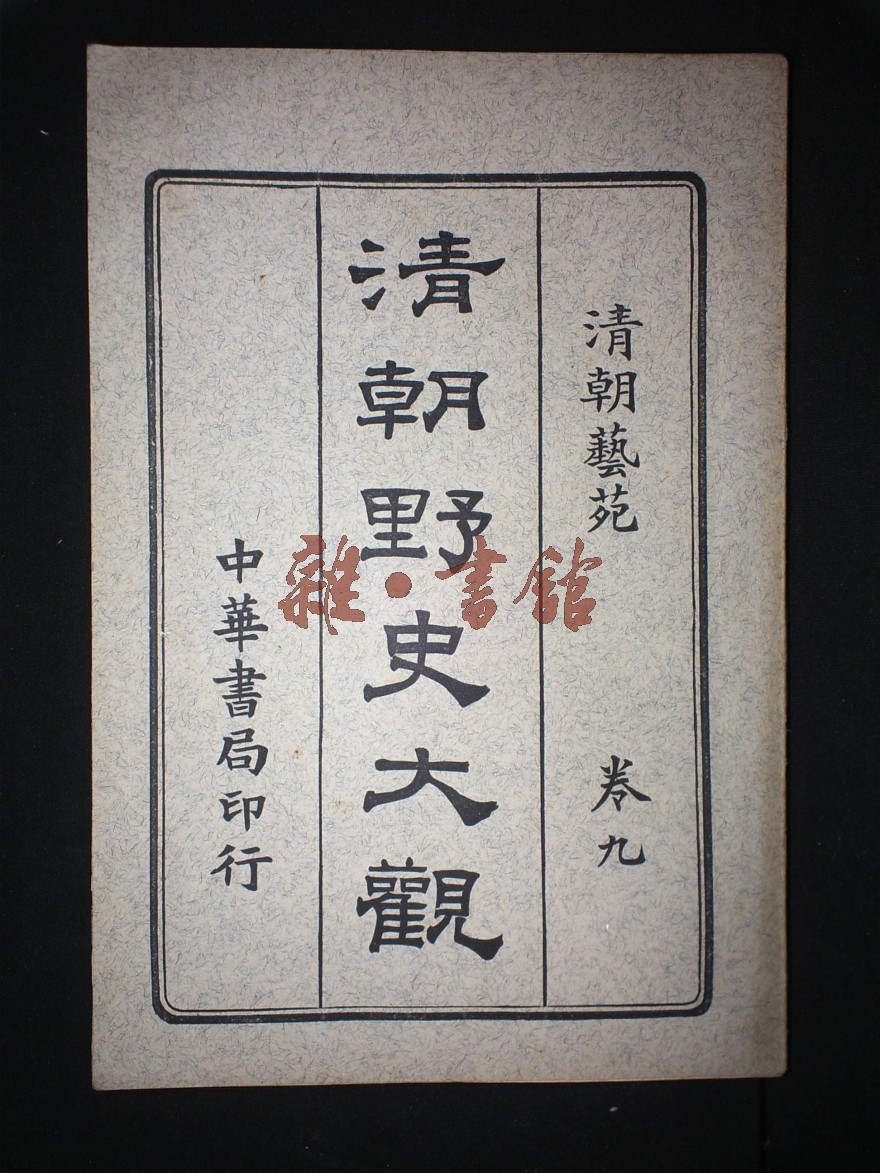 清朝藝苑 卷九
清朝野史大觀
中華書局印行
雜·書館